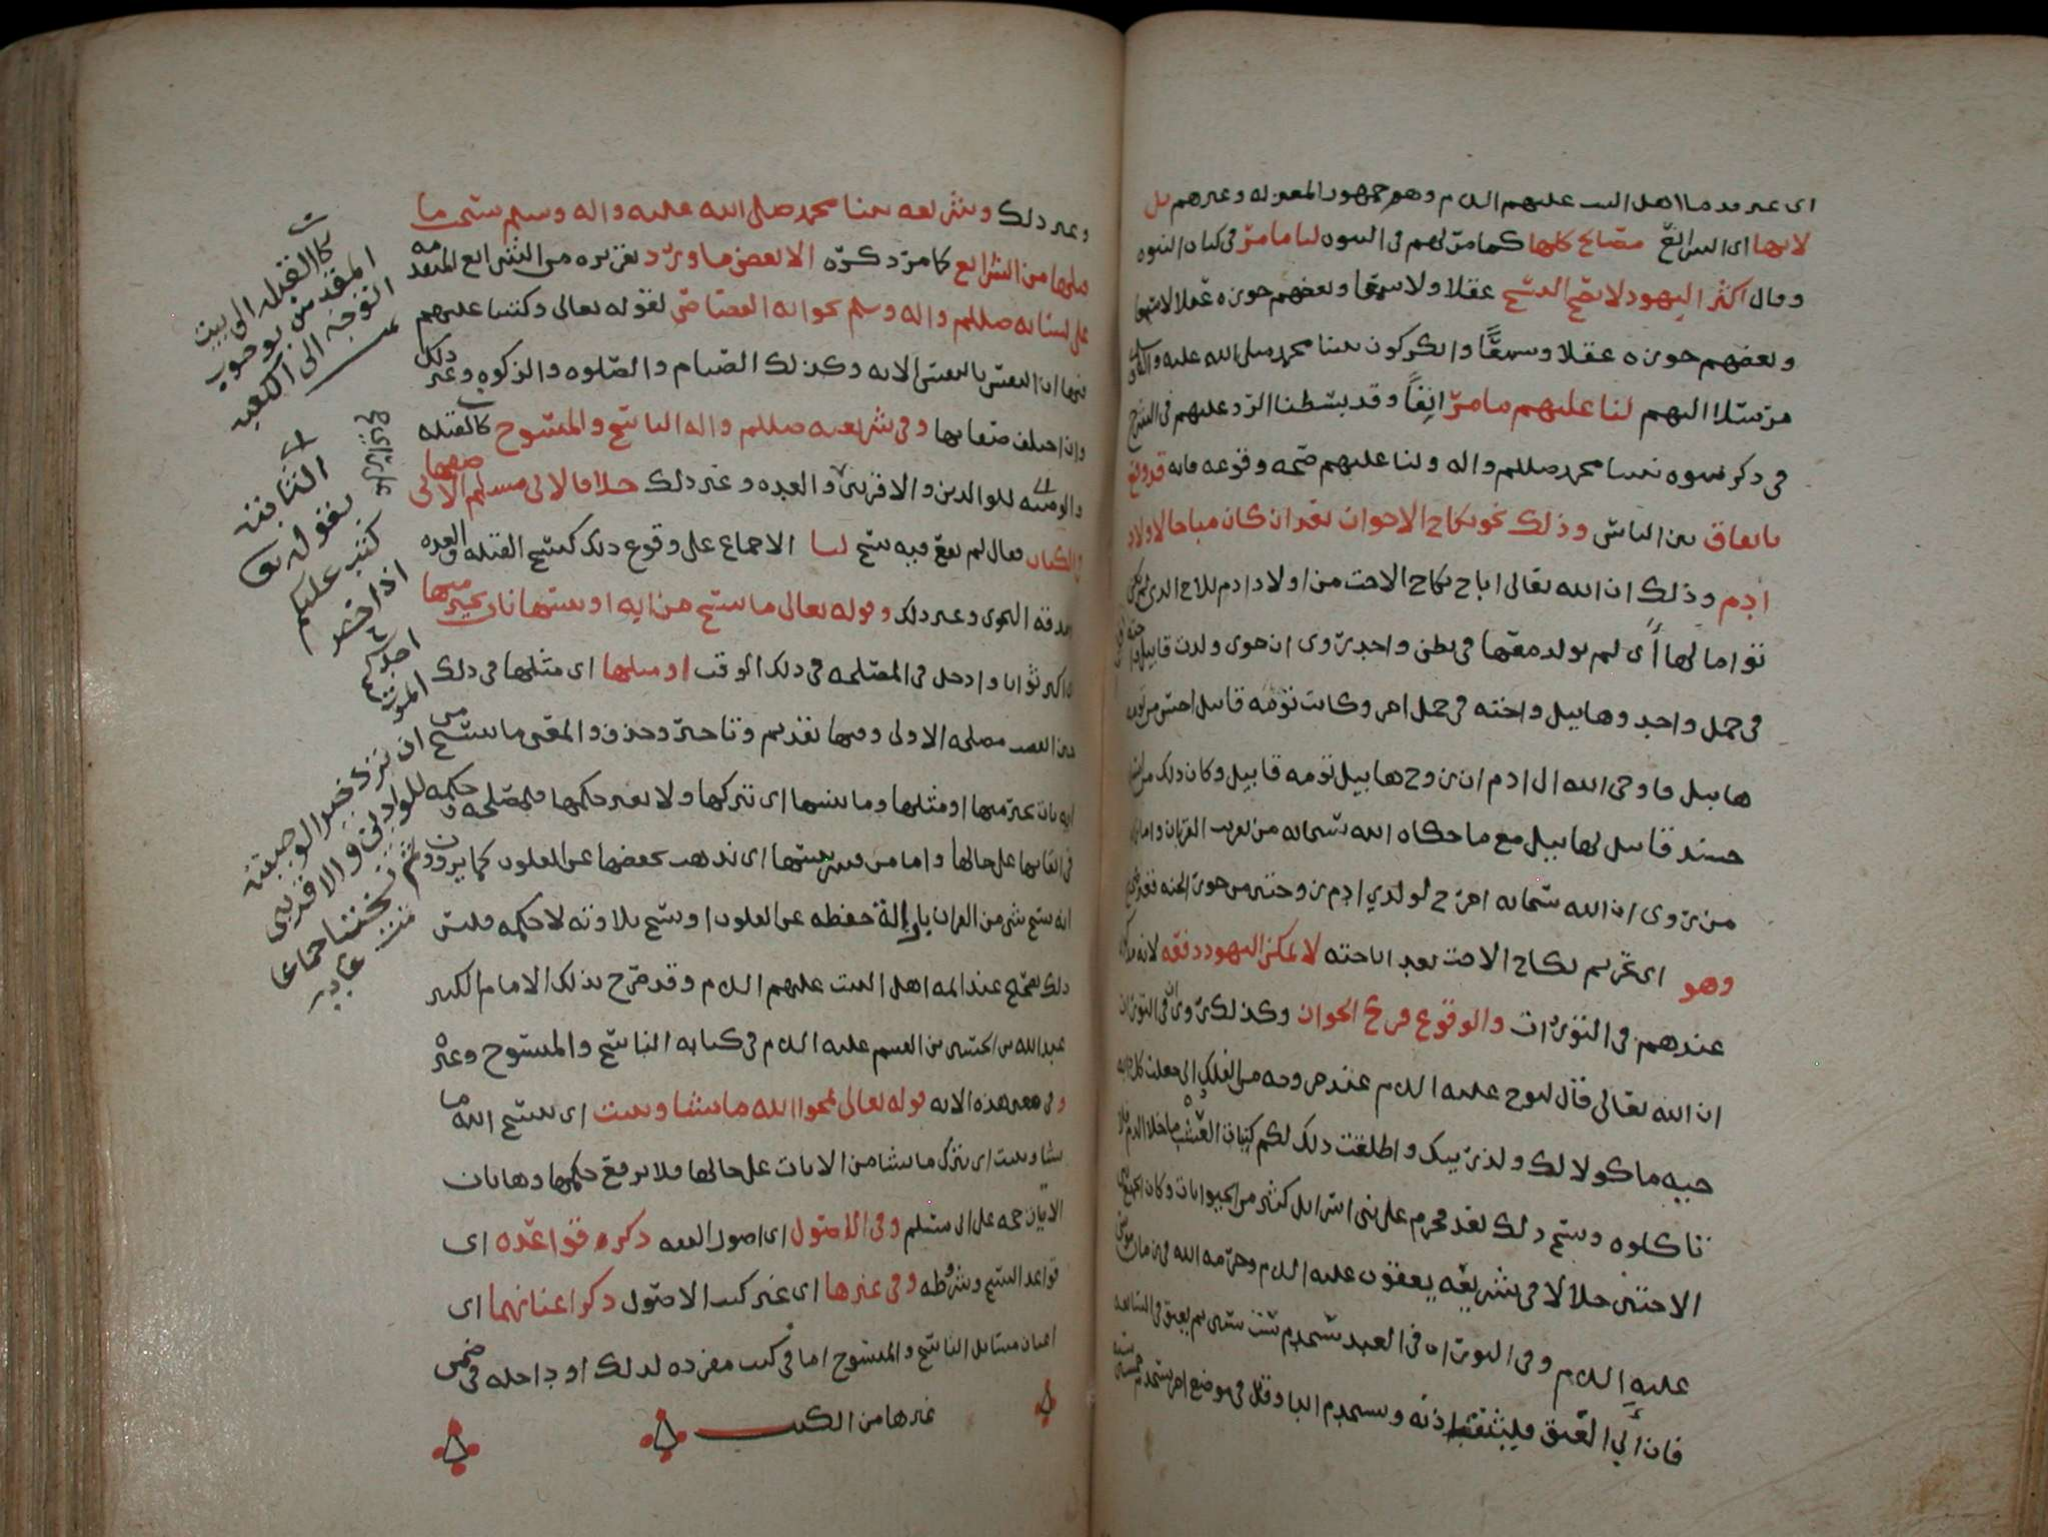 اى عند قدماء اهل البيت عليهم السلام وهو جمهور المعتزله وغيرهم بل
لانها اى الشرائع مصالح كلها كما مر لهم فى النبوه لنا ما مر فى كتاب النبوه
وقال اكثر اليهود لا يصح النسخ عقلا ولا سمعا وبعضهم جوزه عقلا لا سمعا
وبعضهم جوزه عقلا وسمعًا وانكر كون نبينا محمد صلى الله عليه وآله
مرسلا اليهم لنا عليهم ما مرّ انِفاً وقد بسطنا الرد عليهم فى الشرح
فى ذكر نبوه نبينا محمد صللم واله ولنا عليهم صحه وقوعه فانه قد وقع
باتفاق بين الناس وذلك نحو نكاح الاخوات بعد ان كان مباحا لاولاد
ادم وذلك ان الله تعالى اباح نكاح الاخت من اولاد ادم للاخ الذى لم يكن
تواما لها أى لم يولد معها فى بطن واحد روى ان حوى ولدت قابيل واخته
فى حمل واحد وهابيل واخته فى حمل اخر وكانت تومه قابيل احسن من تومه
هابيل فاوحى الله الى ادم ان زوج هابيل تومه قابيل وكان ذلك
حسد قابيل لهابيل مع ما حكاه الله سبحانه من تقريب القربان واما
من روى ان الله سبحانه اخرج لولدي ادم زوجتين من حور الجنه
وهو اى تحريم نكاح الاخت بعد اباحته لا يمكن اليهود دفعه لانه
عندهم فى التورات والوقوع فرع الجواز وكذلك روى ان فى التوراة
ان الله تعالى قال لنوح عليه السلام عند خروجه من الفلك انى جعلت كل دابه
حيه ماكولا لك ولذريتك واطلقت ذلك لكم كنبات العشب ما خلا الدم فلا
تاكلوه ونسخ ذلك بعد فحرم على بنى اسرائل كثير من الحيوانات وكان الجمع بين
الاختين حلالا فى شريعه يعقوب عليه السلام وحرمه الله فى زمان موسى
عليه السلام وفى التوراه فى العبد يستخدم ست سنين ثم يعتق فى السابعه
فان أبى العتق فليثقب اذنه ويستخدم ابدا وقال فى موضع اخر يستخدم خمسين سنه
وغير ذلك وشريعه نبينا محمد صلى الله عليه واله وسلم نسخت ما
قبلها من الشرائع كما مر ذكره الا بعض ما ورد تقريره من الشرائع المتقدمه
على لسانه صللم واله وسلم نحو ايه القصاص لقوله تعالى وكتبنا عليهم
فيها ان النفس بالنفس الايه وكذلك الصيام والصلوه والزكوه وغير ذلك
وان اختلف صفاتها وفى شريعته صللم واله الناسخ والمنسوخ كالقبله
والوصيه للوالدين والاقربين والعده وغير ذلك خلافا لابى مسلم الاصفهانى
فى الكتاب فقال لم يقع فيه نسخ لنا الاجماع على وقوع ذلك كنسخ القبله والعده
وصدقه النجوى وغير ذلك وقوله تعالى ما ننسخ من ايه او ننسها نات بخير منها
اى اكبر ثوابا وادخل فى المصلحه فى ذلك الوقت او مثلها اى مثلها فى ذلك
مصلحه الاولى وفيها تقديم وتاخير وحذف والمعنى ما ننسخ من
ايه نات بخير منها او مثلها وما ننسها اى نتركها ولا نغير حكمها فلمصلحه وحكمه
فى ابقائها على حالها واما من فسر ننسها اى نذهب بحفظها عن القلوب كما يروون
انه نسخ شى من القران بازالة حفظه عن القلوب او نسخ تلاوته لا حكمه فليس
ذلك بصحيح عند ائمه اهل البيت عليهم السلام وقد صرح بذلك الامام الكبير
عبد الله بن الحسين بن القسم عليه السلام فى كتابه الناسخ والمنسوخ وغيره
وفى معنى هذه الايه قوله تعالى يمحوا الله ما يشا ويثبت اى ينسخ الله ما
يشا ويثبت اى يترك ما يشا من الايات على حالها فلا يرفع حكمها وهاتان
الايتان حجه على ابى مسلم وفى الاصول اى اصول الفقه ذكره قواعده اى
قواعد النسخ وشروطه وفى غيرها اى غير كتب الاصول ذكر اعيانهما اى
اعيان مسائل الناسخ والمنسوخ اما فى كتب مفرده لذلك او داخله فى ضمن
غيرها من الكتب
كالقبله الى بيت
المقدس بوجوب
التوجه الى الكعبه
الثابته
بقوله تع
كتب عليكم
اذا حضر
احدكم
الموت
ان ترك خير الوصيته
للوالدين والاقربين
ثم نسخت اجماعا